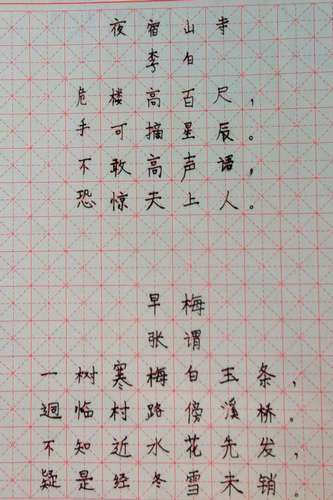 夜宿山寺
李白
危楼高百尺，
手可摘星辰。
不敢高声语，
恐惊天上人。
早梅
张谓
一树寒梅白玉条，
迥临村路傍溪桥。
不知近水花先发，
疑是经冬雪未销。